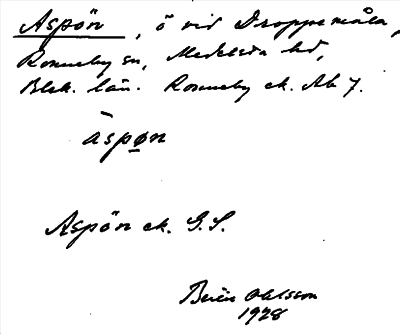 Aspön, ö vid Droppemåla,
Ronneby sn, Medelsta hd,
Blek. län. Ronneby ek. Ab 7.
àspøn
Aspön ek. G.S.
Ohlsson
1928